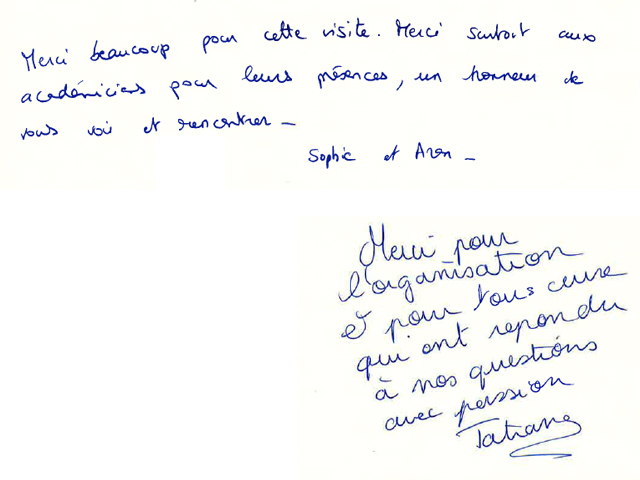 Merci beaucoup pour cette visite. Merci surtout aux
académiciens pour leurs présences, un honneur de
vous voir et rencontrer –
Sophie et Aron –
Merci pour
l'organisation
et pour tous ceux
qui ont repondu
à nos questions
avec passion
Tatiana